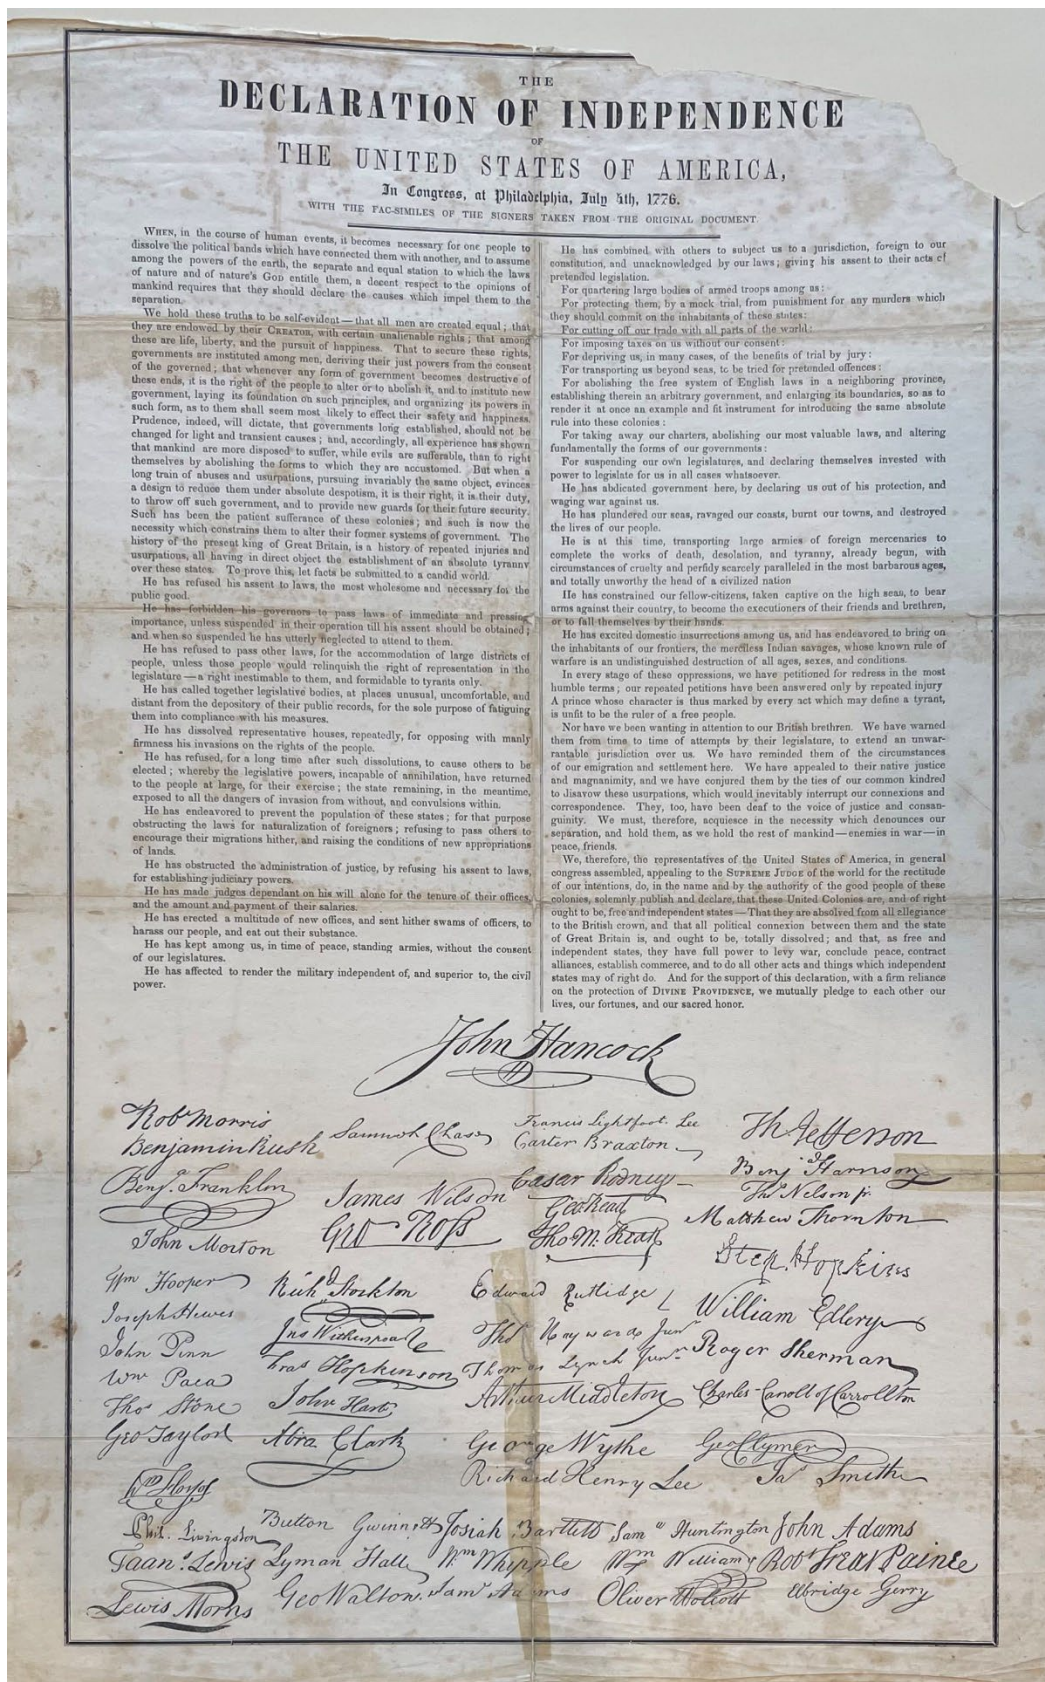 THE
DECLARATION OF INDEPENDENCE
OF
THE UNITED STATES OF AMERICA,
In Congress, at Philadelphia, July 4th, 1776.
WITH THE FAC-SIMILES OF THE SIGNERS TAKEN FROM THE ORIGINAL DOCUMENT
WHEN, in the course of human events, it becomes necessary for one people to
dissolve the political bands which have connected them with another, and to assume
among the powers of the earth, the separate and equal station to which the laws
of nature and of nature's GOD entitle them, a decent respect to the opinions of
mankind requires that they should declare the causes which impel them to the
separation.
We hold these truths to be self-evident — that all men are created equal; that
they are endowed by their CREATOR, with certain unalienable rights; that among
these are life, liberty, and the pursuit of happiness. That to secure these rights,
governments are instituted among men, deriving their just powers from the consent
of the governed; that whenever any form of government becomes destructive of
these ends, it is the right of the people to alter or to abolish it, and to institute new
government, laying its foundation on such principles, and organizing its powers in
such form, as to them shall seem most likely to effect their safety and happiness.
Prudence, indeed, will dictate, that governments long established, should not be
changed for light and transient causes; and, accordingly, all experience has shown
that mankind are more disposed to suffer, while evils are sufferable, than to right
themselves by abolishing the forms to which they are accustomed. But when a
long train of abuses and usurpations, pursuing invariably the same object, evinces
a design to reduce them under absolute despotism, it is their right, it is their duty,
to throw off such government, and to provide new guards for their future security.
Such has been the patient sufferance of these colonies; and such is now the
necessity which constrains them to alter their former systems of government. The
history of the present king of Great Britain, is a history of repeated injuries and
usurpations, all having in direct object the establishment of an absolute tyranny
over these states. To prove this, let facts be submitted to a candid world.
He has refused his assent to laws, the most wholesome and necessary for the
public good.
He has forbidden his governors to pass laws of immediate and pressing
importance, unless suspended in their operation till his assent should be obtained;
and when so suspended he has utterly neglected to attend to them.
He has refused to pass other laws, for the accommodation of large districts of
people, unless those people would relinquish the right of representation in the
legislature — a right inestimable to them, and formidable to tyrants only.
He has called together legislative bodies, at places unusual, uncomfortable, and
distant from the depository of their public records, for the sole purpose of fatiguing
them into compliance with his measures.
He has dissolved representative houses, repeatedly, for opposing with manly
firmness his invasions on the rights of the people.
He has refused, for a long time after such dissolutions, to cause others to be
elected; whereby the legislative powers, incapable of annihilation, have returned
to the people at large, for their exercise; the state remaining, in the meantime,
exposed to all the dangers of invasion from without, and convulsions within.
He has endeavored to prevent the population of these states; for that purpose
obstructing the laws for naturalization of foreigners; refusing to pass others to
encourage their migrations hither, and raising the conditions of new appropriations
of lands.
He has obstructed the administration of justice, by refusing his assent to laws,
for establishing judiciary powers.
He has made judges dependant on his will alone for the tenure of their offices,
and the amount and payment of their salaries.
He has erected a multitude of new offices, and sent hither swams of officers, to
harass our people, and eat out their substance.
He has kept among us, in time of peace, standing armies, without the consent
of our legislatures.
He has affected to render the military independent of, and superior to, the civil
power.
He has combined with others to subject us to a jurisdiction, foreign to our
constitution, and unacknowledged by our laws; giving his assent to their acts of
pretended legislation.
For quartering large bodies of armed troops among us:
For protecting them, by a mock trial, from punishment for any murders which
they should commit on the inhabitants of these states:
For cutting off our trade with all parts of the world:
For imposing taxes on us without our consent:
For depriving us, in many cases, of the benefits of trial by jury:
For transporting us beyond seas, to be tried for pretended offences:
For abolishing the free system of English laws in a neighboring province,
establishing therein an arbitrary government, and enlarging its boundaries, so as to
render it at once an example and fit instrument for introducing the same absolute
rule into these colonies:
For taking away our charters, abolishing our most valuable laws, and altering
fundamentally the forms of our governments:
For suspending our own legislatures, and declaring themselves invested with
power to legislate for us in all cases whatsoever.
He has abdicated government here, by declaring us out of his protection, and
waging war against us.
He has plundered our seas, ravaged our coasts, burnt our towns, and destroyed
the lives of our people.
He is at this time, transporting large armies of foreign mercenaries to
complete the works of death, desolation, and tyranny, already begun, with
circumstances of cruelty and perfidy scarcely paralleled in the most barbarous ages,
and totally unworthy the head of a civilized nation
He has constrained our fellow-citizens, taken captive on the high seas, to bear
arms against their country, to become the executioners of their friends and brethren,
or to fall themselves by their hands.
He has excited domestic insurrections among us, and has endeavored to bring on
the inhabitants of our frontiers, the merciless Indian savages, whose known rule of
warfare is an undistinguished destruction of all ages, sexes, and conditions.
In every stage of these oppressions, we have petitioned for redress in the most
humble terms; our repeated petitions have been answered only by repeated injury
A prince whose character is thus marked by every act which may define a tyrant,
is unfit to be the ruler of a free people.
Nor have we been wanting in attention to our British brethren. We have warned
them from time to time of attempts by their legislature, to extend an unwar-
rantable jurisdiction over us. We have reminded them of the circumstances
of our emigration and settlement here. We have appealed to their native justice
and magnanimity, and we have conjured them by the ties of our common kindred
to disavow these usurpations, which would inevitably interrupt our connexions and
correspondence. They, too, have been deaf to the voice of justice and consan-
guinity. We must, therefore, acquiesce in the necessity which denounces our
separation, and hold them, as we hold the rest of mankind — enemies in war — in
peace, friends.
We, therefore, the representatives of the United States of America, in general
congress assembled, appealing to the SUPREME JUDGE of the world for the rectitude
of our intentions, do, in the name and by the authority of the good people of these
colonies, solemnly publish and declare, that these United Colonies are, and of right
ought to be, free and independent states — That they are absolved from all allegiance
to the British crown, and that all political connexion between them and the state
of Great Britain is, and ought to be, totally dissolved; and that, as free and
independent states, they have full power to levy war, conclude peace, contract
alliances, establish commerce, and to do all other acts and things which independent
states may of right do. And for the support of this declaration, with a firm reliance
on the protection of DIVINE PROVIDENCE, we mutually pledge to each other our
lives, our fortunes, and our sacred honor.
John Hancock
Robt Morris
Benjamin Rush
Benj. Franklin
John Morton
Samuel Chase
James Wilson
Geo Ross
Francis Lightfoot Lee
Carter Braxton
Cæsar Rodney
Geo Read
Tho M. Kean
Th Jefferson
Benj Harrison
Thos Nelson jr.
Matthew Thornton
Step. Hopkins
Wm Hooper
Joseph Hewes
John Penn
Wm Paca
Thos Stone
Geo Taylor
Richd Stockton
Jno Witherspoon
Fras Hopkinson
John Hart
Abra Clark
Edward Rutledge
Thos Heyward Junr
Thomas Lynch Junr
Arthur Middleton
George Wythe
Richard Henry Lee
William Ellery
Roger Sherman
Charles Carroll of Carrollton
Geo Clymer
Jas Smith
Wm Floyd
Phil. Livingston
Frans. Lewis
Lewis Morris
Button Gwinnett
Lyman Hall
Geo Walton.
Josiah Bartlett
Wm Whipple
Saml Adams
Saml Huntington
Wm Williams
Oliver Wolcott
John Adams
Robt Treat Paine
Elbridge Gerry